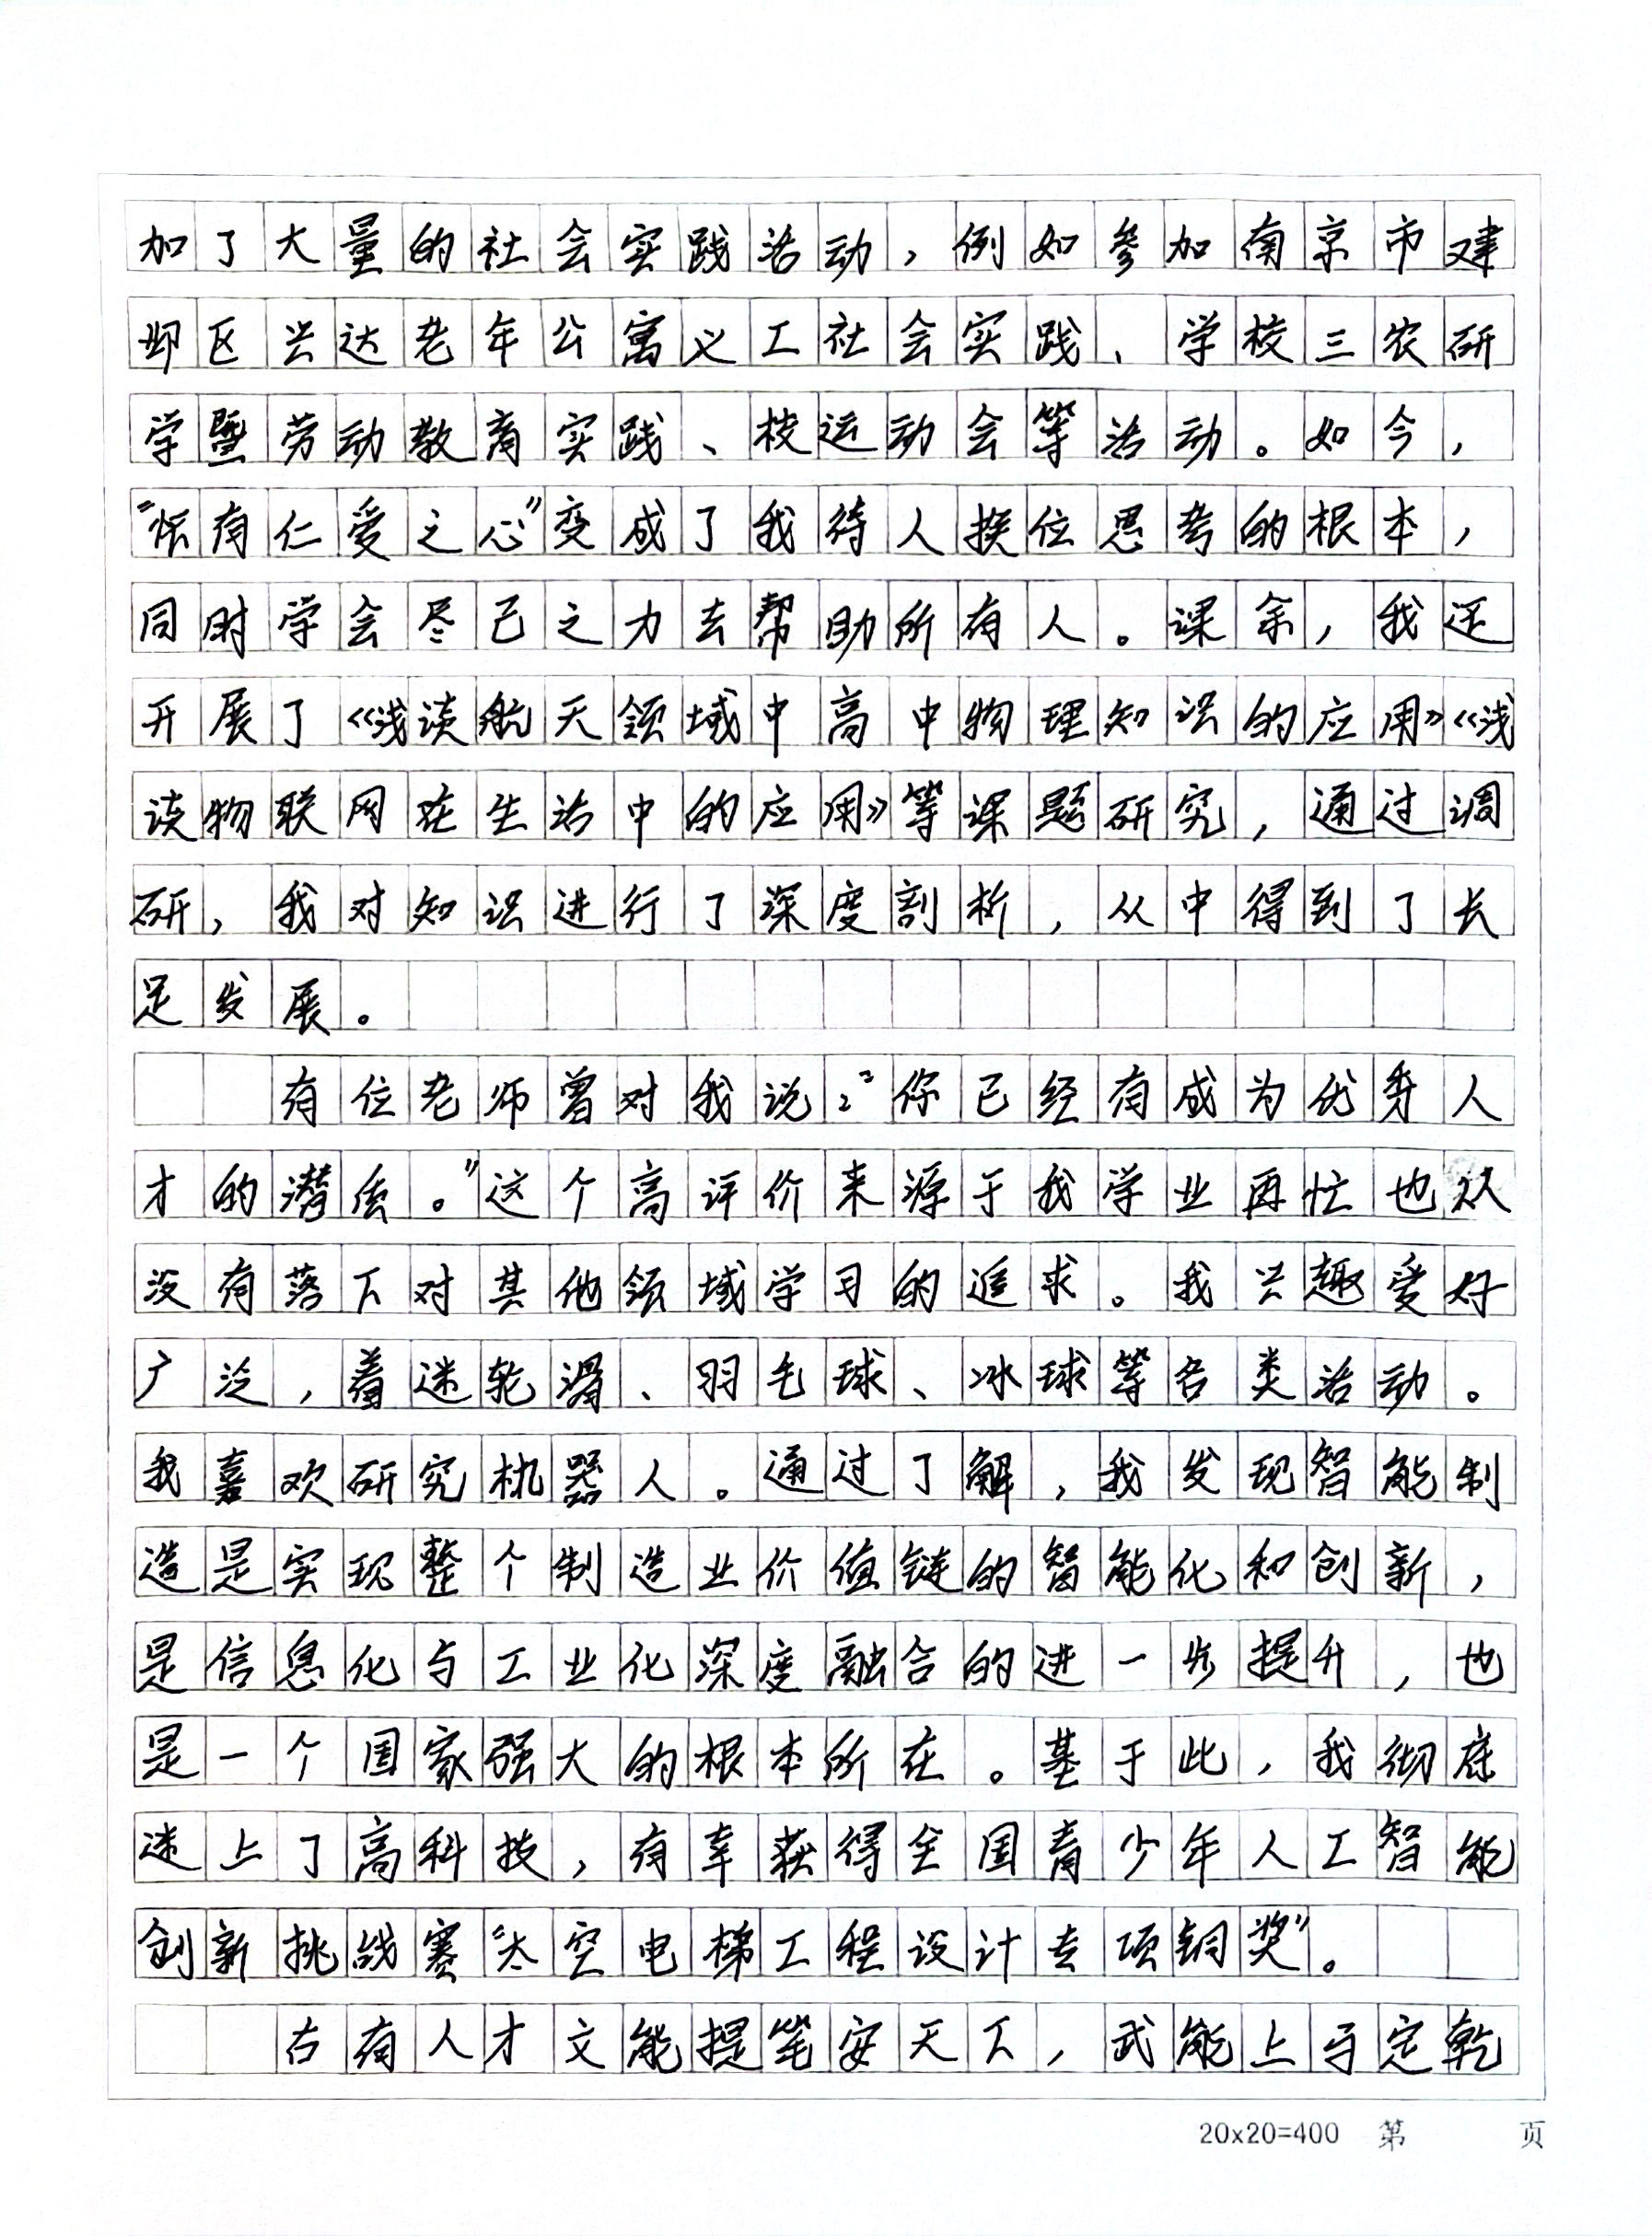 加了大量的社会实践活动，例如参加南京市建
邺区兴达老年公寓义工社会实践、学校三农研
学暨劳动教育实践、校运动会等活动。如今，
“怀有仁爱之心”变成了我待人换位思考的根本，
同时学会尽己之力去帮助所有人。课余，我还
开展了《浅谈航天领域中高中物理知识的应用》《浅
谈物联网在生活中的应用》等课题研究，通过调
研，我对知识进行了深度剖析，从中得到了长
足发展。
有位老师曾对我说：“你已经有成为优秀人
才的潜质。”这个高评价来源于我学业再忙也从
没有落下对其他领域学习的追求。我兴趣爱好
广泛，着迷轮滑、羽毛球、冰球等各类活动。
我喜欢研究机器人。通过了解，我发现智能制
造是实现整个制造业价值链的智能化和创新，
是信息化与工业化深度融合的进一步提升，也
是一个国家强大的根本所在。基于此，我彻底
迷上了高科技，有幸获得全国青少年人工智能
创新挑战赛“太空电梯工程设计专项铜奖”。
古有人才文能提笔安天下，武能上马定乾
20x20=400 第 页